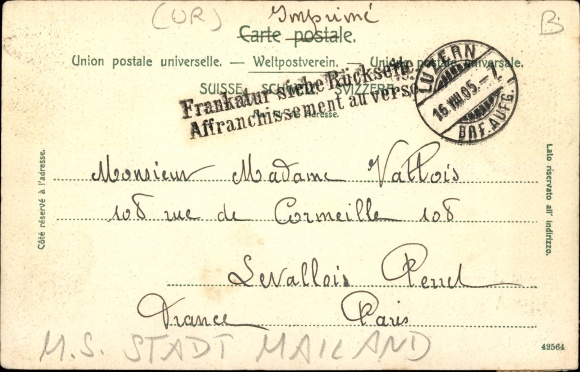 (UR) Imprimé B
Carte postale.
Union postale universelle. — Weltpostverein. — Unione postale universale.
SUISSE. SCHWEIZ. SVIZZERA.
Frankatur siehe Rückseite.
Affranchissement au verso.
LUZERN
16.VIII.05.-7
BRF.AUFG.
Côté réservé à l'adresse.
Lato riservato all' indirizzo.
Monsieur Madame Vallois
108 rue de Cormeille 108
Levallois Perret
France Paris
M.S. STADT MAILAND
42564